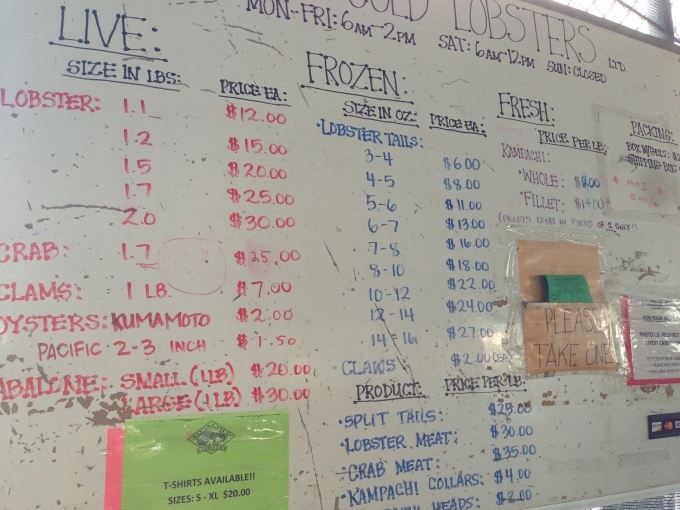 LOBSTERS LTD
MON-FRI: 6AM-2PM
SAT: 6AM-12PM SUN: CLOSED
LIVE:
SIZE IN LBS: PRICE EA:
LOBSTER: 1.1 $12.00
1.2 $15.00
1.5 $20.00
1.7 $25.00
2.0 $30.00
CRAB: 1.7 $25.00
CLAMS: 1 LB. $7.00
OYSTERS: KUMAMOTO $2.00
PACIFIC 2-3 INCH $1.50
ABALONE: SMALL (1LB) $20.00
LARGE (1LB) $30.00
T-SHIRTS AVAILABLE!!
SIZES: S - XL $20.00
FROZEN:
SIZE IN OZ: PRICE EA:
•LOBSTER TAILS:
3-4 $6.00
4-5 $8.00
5-6 $11.00
6-7 $13.00
7-8 $16.00
8-10 $18.00
10-12 $22.00
12-14 $24.00
14-16 $27.00
CLAWS $2.00 (EA)
PRODUCT: PRICE PER LB:
•SPLIT TAILS: $25.00
•LOBSTER MEAT: $30.00
•CRAB MEAT: $35.00
•KAMPACHI COLLARS: $4.00
HEADS: $2.00
FRESH:
PRICE PER LB:
KAMPACHI:
•WHOLE: $8.00
•FILLET: $14.00
(FILLETS COME IN PACKS OF 2 ONLY!!
PACKING:
PLEASE
TAKE ONE